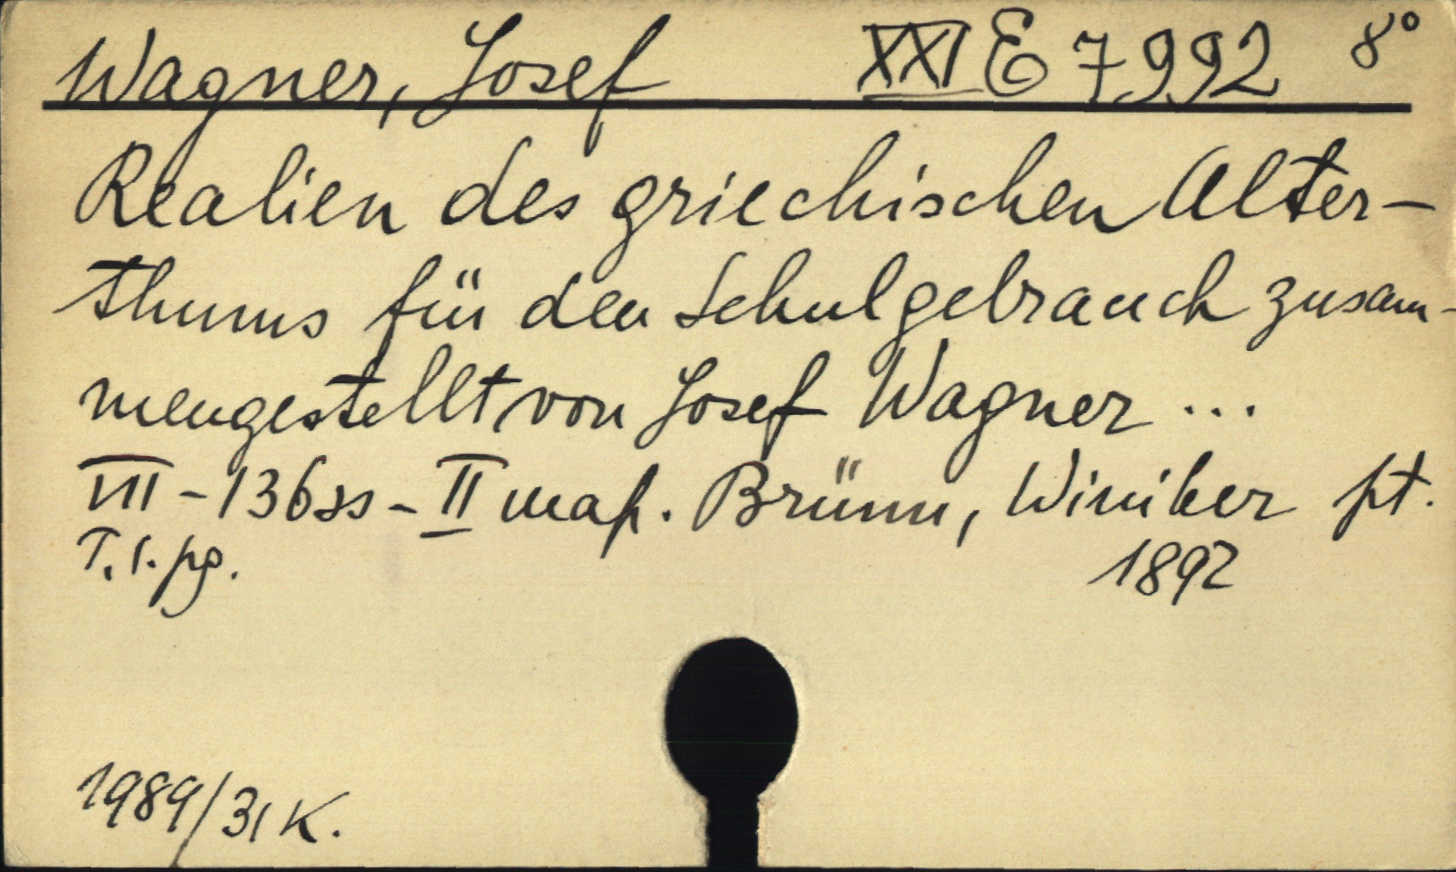 Wagner, Josef XXI E 7992 8°
Realien des griechischen Alter-
thums für den Schulgebrauch zusam-
mengestellt von Josef Wagner ...
VII - 136 ss - II map. Brünn, Winiker pt.
T. 1. pg. 1892
1989/31 K.